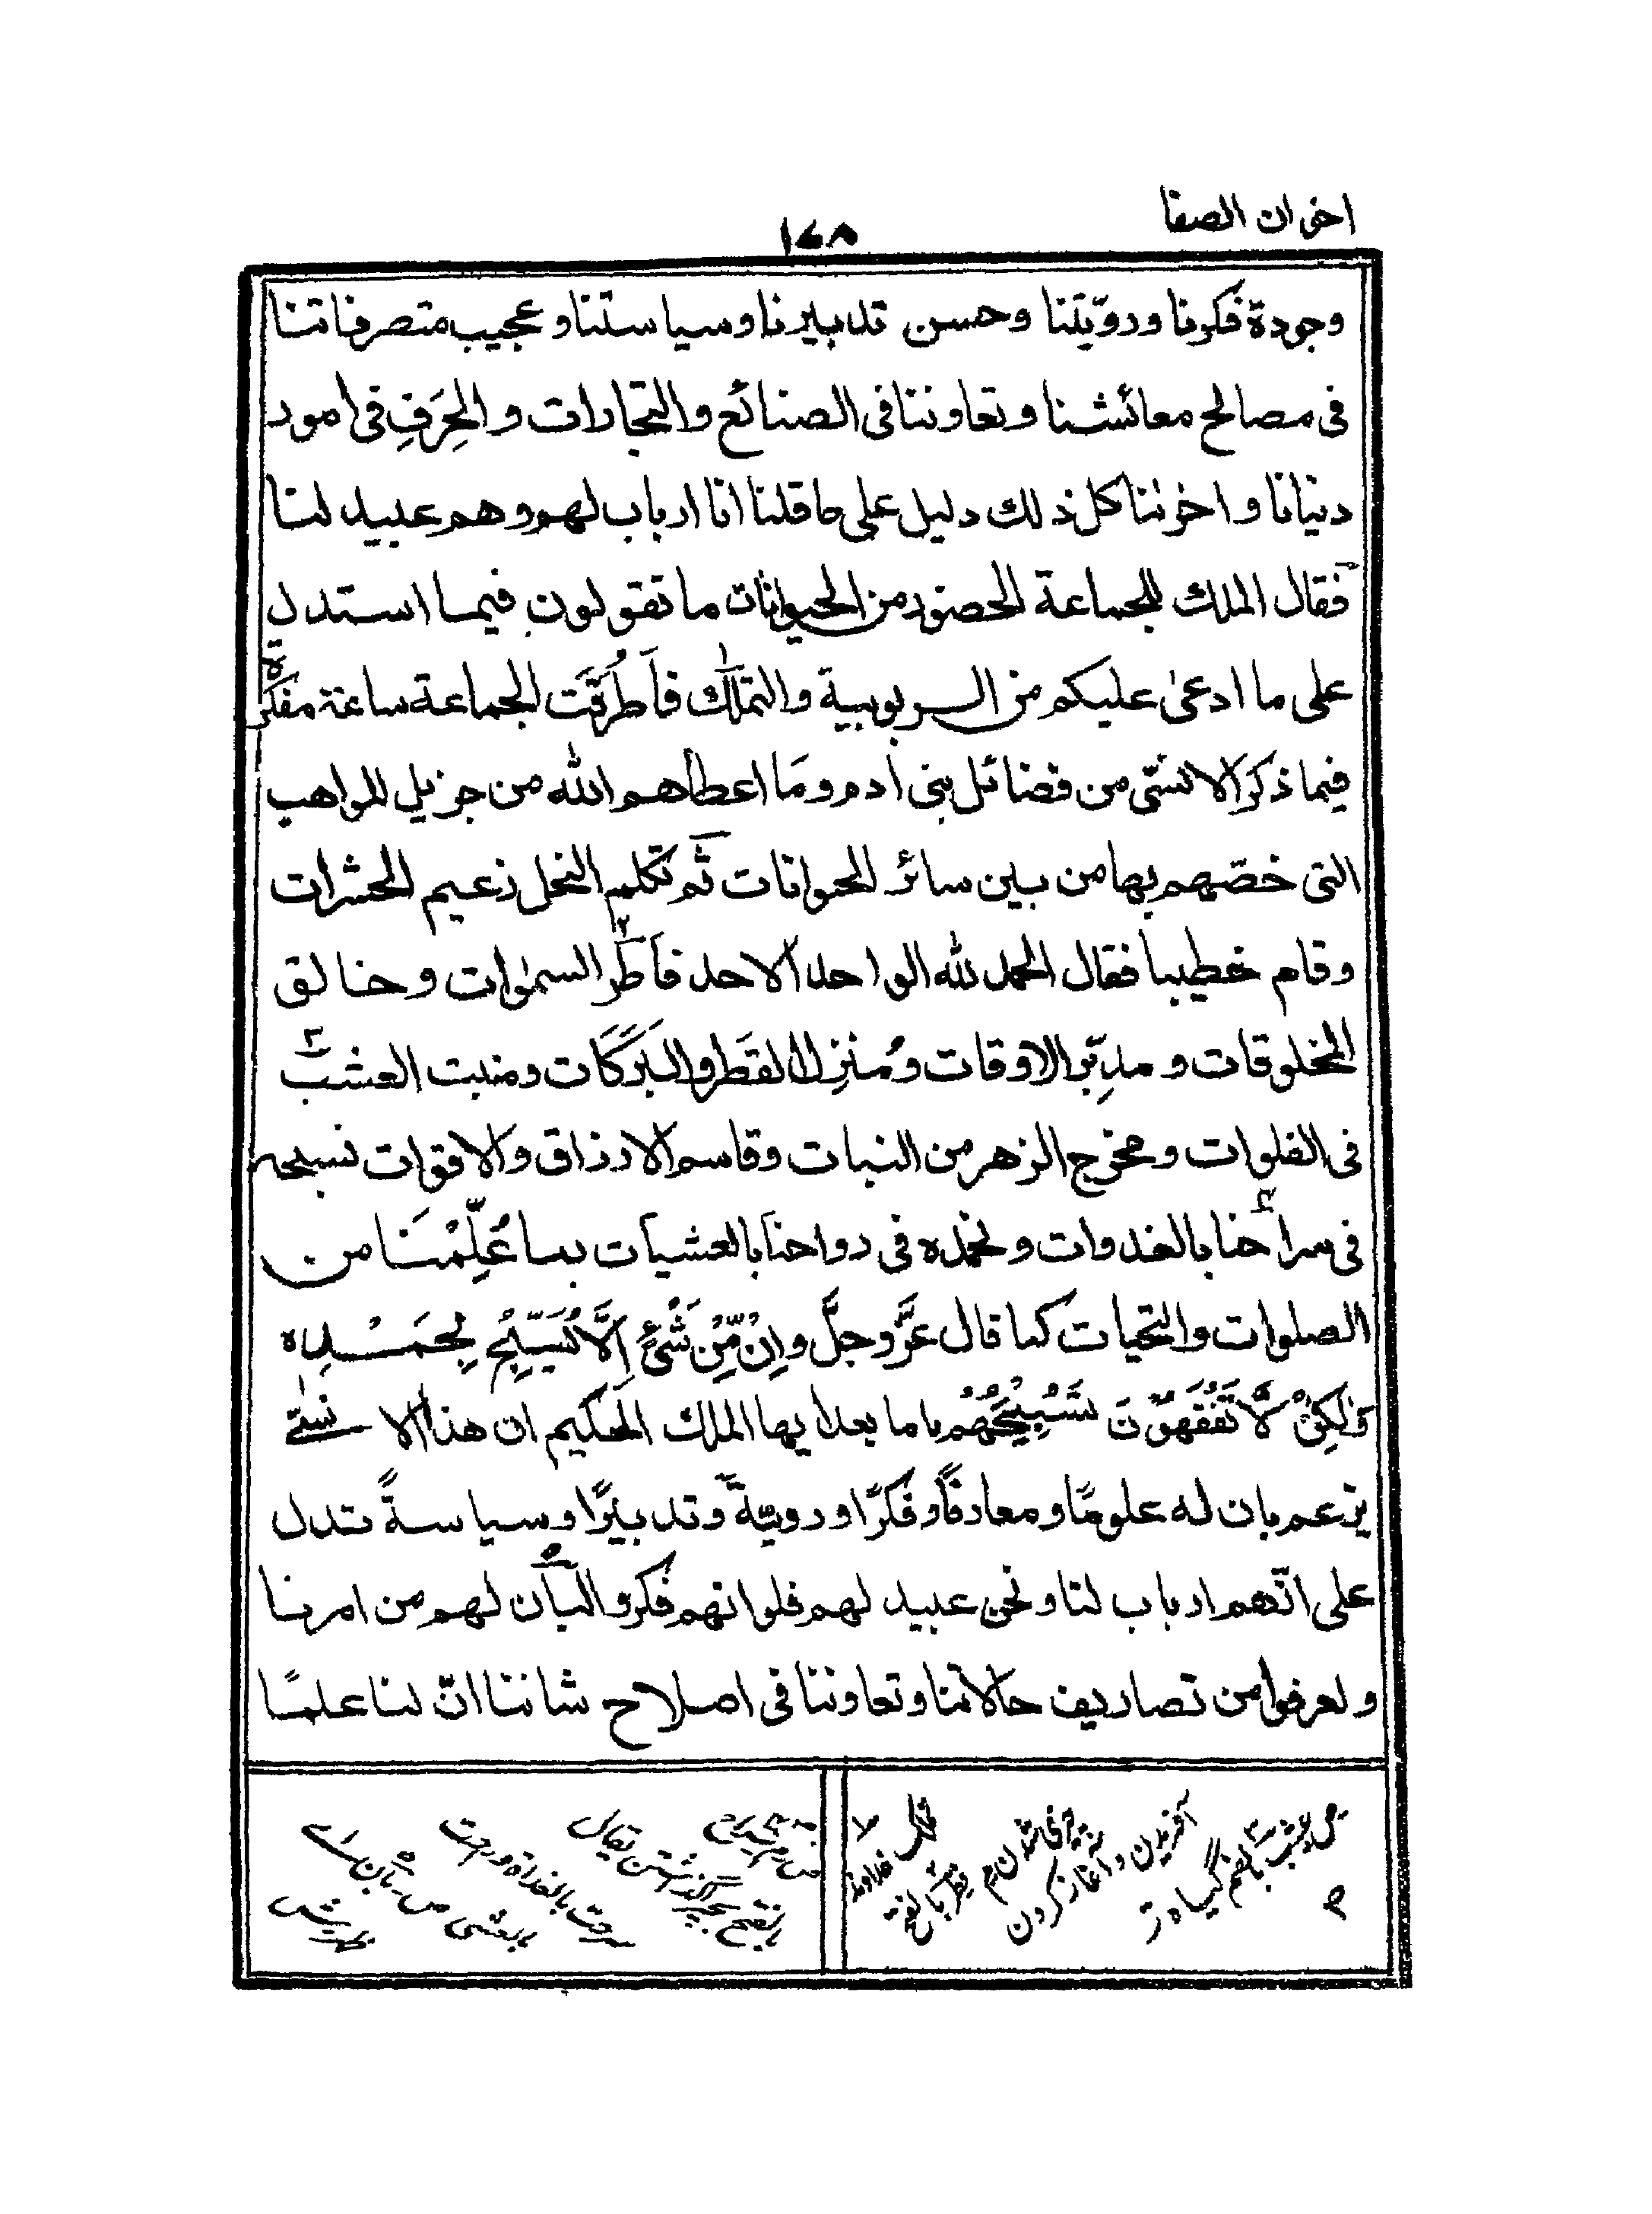 اخوان الصفا
١٤٨
وجودة فكرنا ورويّتنا وحسن تدبيرنا وسياستنا وعجيب متصرفاتنا
فى مصالح معائشنا وتعاوننا فى الصنائع والتجارات والحِرَفِ فى امور
دنيانا واخرٰنا كل ذلك دليل على ما قلنا انا ارباب لهم وهم عبيد لنا
فقال الملك للجماعة الحضور من الحيوانات ما تقولون فيما استدل
على ما ادعىٰ عليكم من الربوبية والتملّك فَاَطْرَقَت الجماعة ساعة مفكّرة
فيما ذكرَ الانسىّ من فضائل بنى اٰدم ومَا اعطاهم الله من جزيل المواهب
التى خصّهم بها من بين سائر الحيوانات ثم تكلم النحل زعيم الحشرات
وقام خطيبا فقال الحمد لله الواحد الاحد فَاطر السمٰوات وخالق
المخلوقات ومدبِّر الاوقات ومُنزِل القَطر والبَرَكَات ومنبت العشب
فى الفلوات ومخرج الزهر من النبات وقاسم الارزاق والاقوات نسبحه
فى سراحنا بالغدوات ونحمده فى رواحنا بالعشيات بما عُلِّمْنَا من
الصلوات والتحيات كما قال عزَّ وجلَّ وَاِنْ مِّنْ شَىْءٍ اِلَّا يُسَبِّحُ بِحَمْدِه
وَلٰكِنْ لَّا تَفْقَهُوْنَ تَسْبِيْحَهُمْ اما بعد ايها الملك الحكيم ان هذا الانسىّ
يزعم بان له علومًا ومعارفًا وفكرًا ورويّةً وتدبيرًا وسياسةً تدل
على انّهم ارباب لنا ونحن عبيد لهم فلو انهم فكروا لبَان لهم من امرنا
ولعرفوا من تصاريف حالاتنا وتعاوننا فى اصلاح شاننا انّ لنا علمًا
تملك خداوند
فطر بالفتح
آفريدن وآغاز كردن
عشب بالضم گياه تر